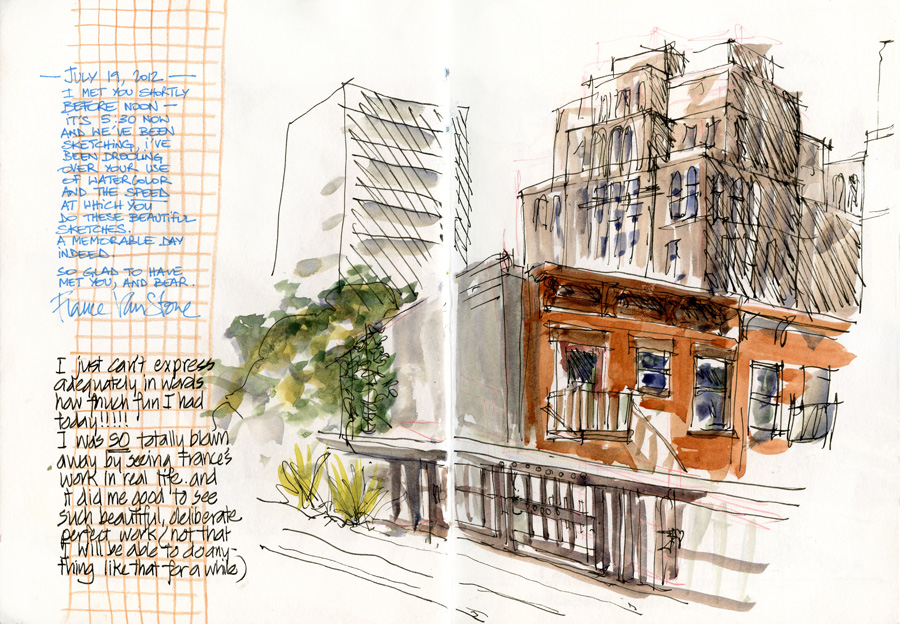 — JULY 19, 2012 —
I MET YOU SHORTLY
BEFORE NOON —
IT'S 5:30 NOW
AND WE'VE BEEN
SKETCHING, I'VE
BEEN DROOLING
OVER YOUR USE
OF WATERCOLOR
AND THE SPEED
AT WHICH YOU
DO THESE BEAUTIFUL
SKETCHES.
A MEMORABLE DAY
INDEED.
SO GLAD TO HAVE
MET YOU, AND BEAR.
France Van Stone
I just can't express
adequately in words
how much fun I had
today!!!!!
I was SO totally blown
away by seeing France's
work in real life. and
it did me good to see
such beautiful, deliberate
perfect work (not that
I will be able to do any-
thing like that for a while)